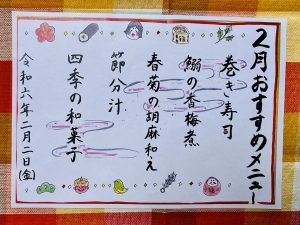 2月おすすめメニュー
巻き寿司
鰯の香梅煮
春菊の胡麻和え
節分汁
四季の和菓子
令和六年二月二日(金)